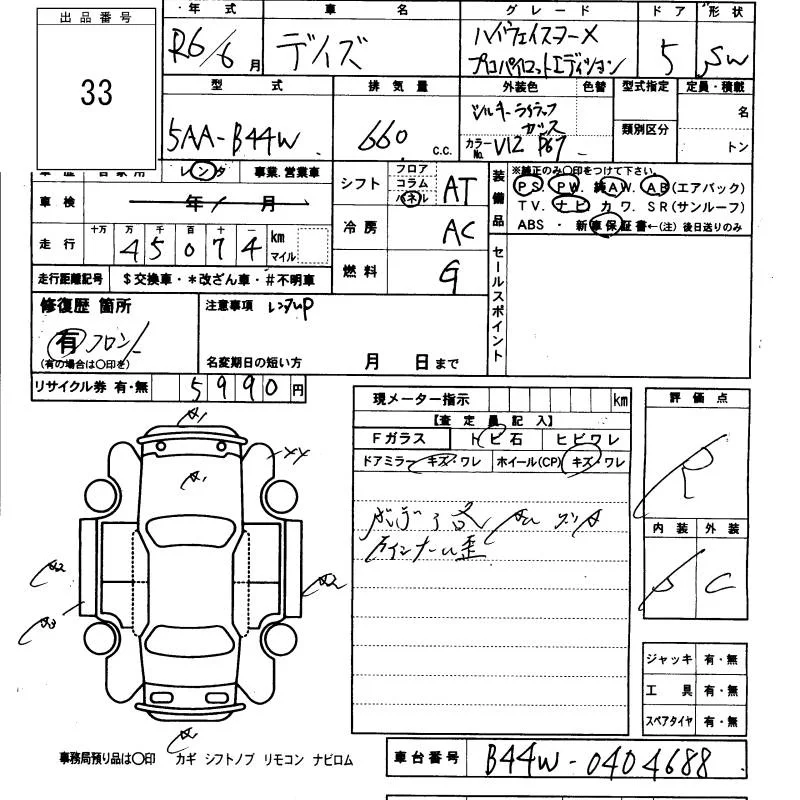 出品番号
33
年式
R6/6月
車名
デイズ
グレード
ハイウェイスターX
プロパイロットエディション
ドア
5
形状
SW
型式
5AA-B44W
排気量
660 c.c.
外装色
色替
カラーNo. V12 P67
型式指定
類別区分
定員・積載
名
トン
レンタ 事業.営業車
車検
年 月
走行
十万 万 千 百 十 一
45074 km
マイル
走行距離記号 $交換車・*改ざん車・#不明車
シフト
フロア
コラム
パネル
AT
冷房
AC
燃料
G
装備品
※純正のみ〇印をつけて下さい。
PS. PW. 純AW. AB(エアバック)
TV. ナビ カワ. SR(サンルーフ)
ABS ・ 新車保証書←(注)後日送りのみ
セールスポイント
修復歴 箇所
有 フロント
(有の場合は〇印を)
注意事項 レンタUP
名変期日の短い方 月 日まで
リサイクル券 有・無 5990円
現メーター指示 km
【査定員記入】
Fガラス トビ石 ヒビワレ
ドアミラー キズ・ワレ ホイール(CP) キズ・ワレ
評価点
R
内装 外装
C
A1
XX
A1
A2
A2
A3
ジャッキ 有・無
工具 有・無
スペアタイヤ 有・無
事務局預り品は〇印 カギ シフトノブ リモコン ナビロム
車台番号 B44W-0404688